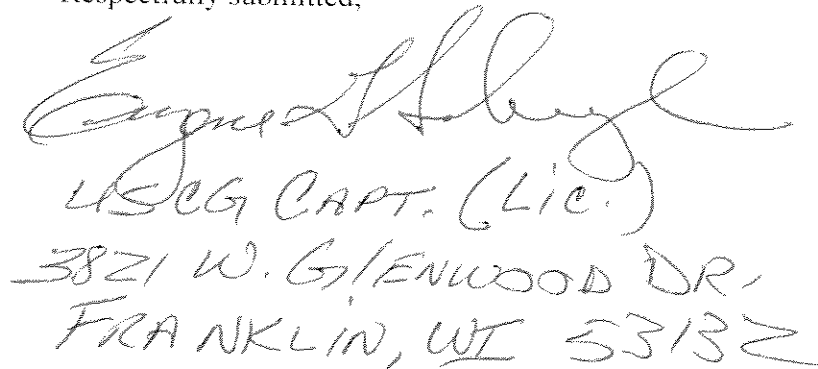 Respectfully submitted,
Eugene
USCG CAPT. (Lic.)
3821 W. GLENWOOD DR.
FRANKLIN, WI 53132